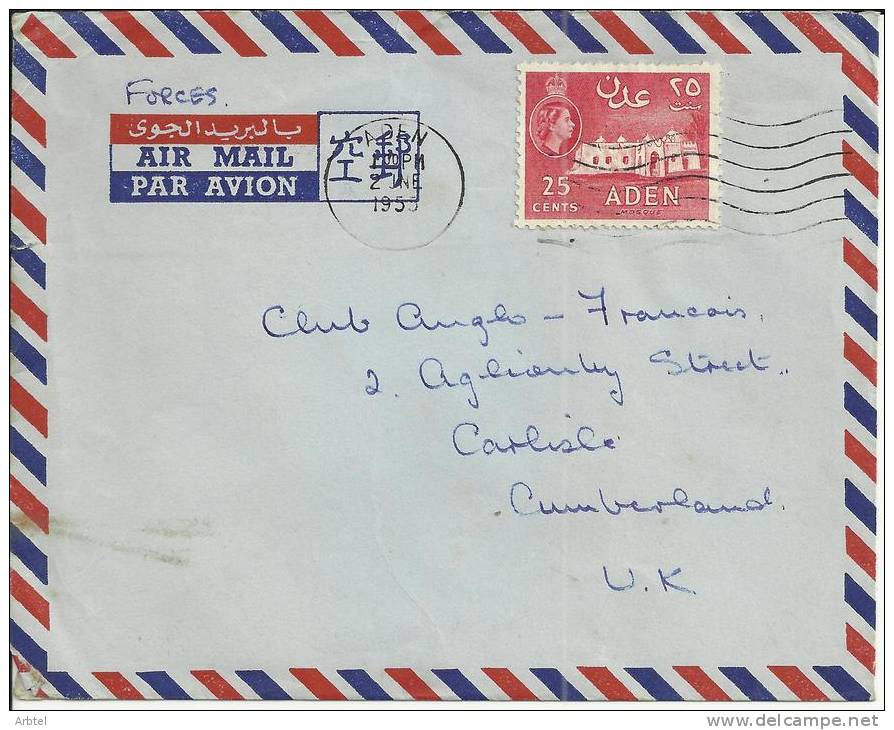 FORCES.
بالبريد الجوى
AIR MAIL
PAR AVION
空郵
ADEN
2 JNE
195
عدن ٢٥
سنت
25
CENTS
ADEN
MOSQUE
Club Anglo - Francais,
2. Aglionby Street.,
Carlisle
Cumberland.
U.K.
Arbtel
www.delcampe.net